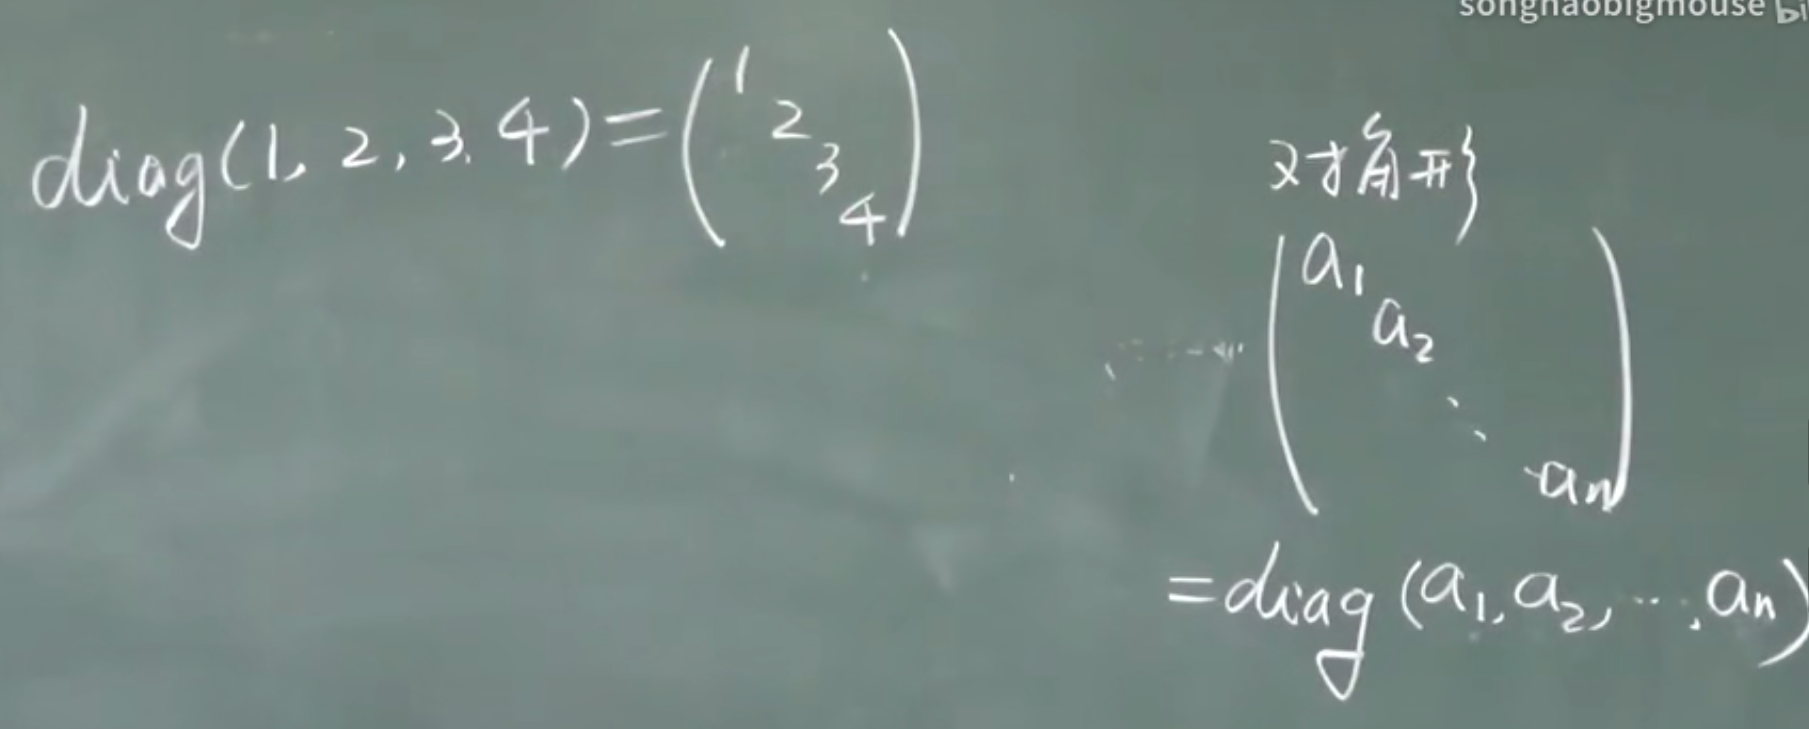 songhaobigmouse bi
diag(1, 2, 3, 4) = (1 2 3 4)
对角形
(a₁ a₂ ⋱ aₙ)
= diag (a₁, a₂, ⋯, aₙ)